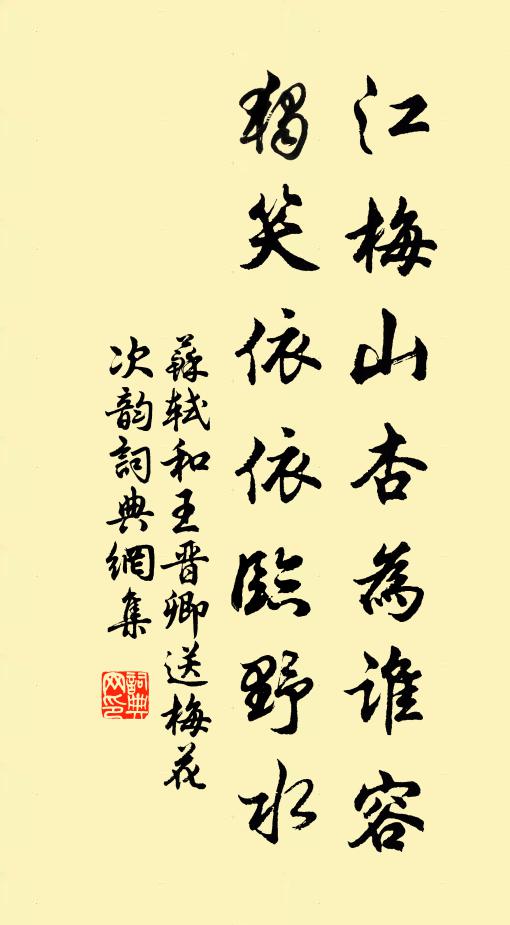 江梅山杏為誰容
獨笑依依臨野水
蘇軾和王晉卿送梅花
次韵詞典網集
詞典
网印